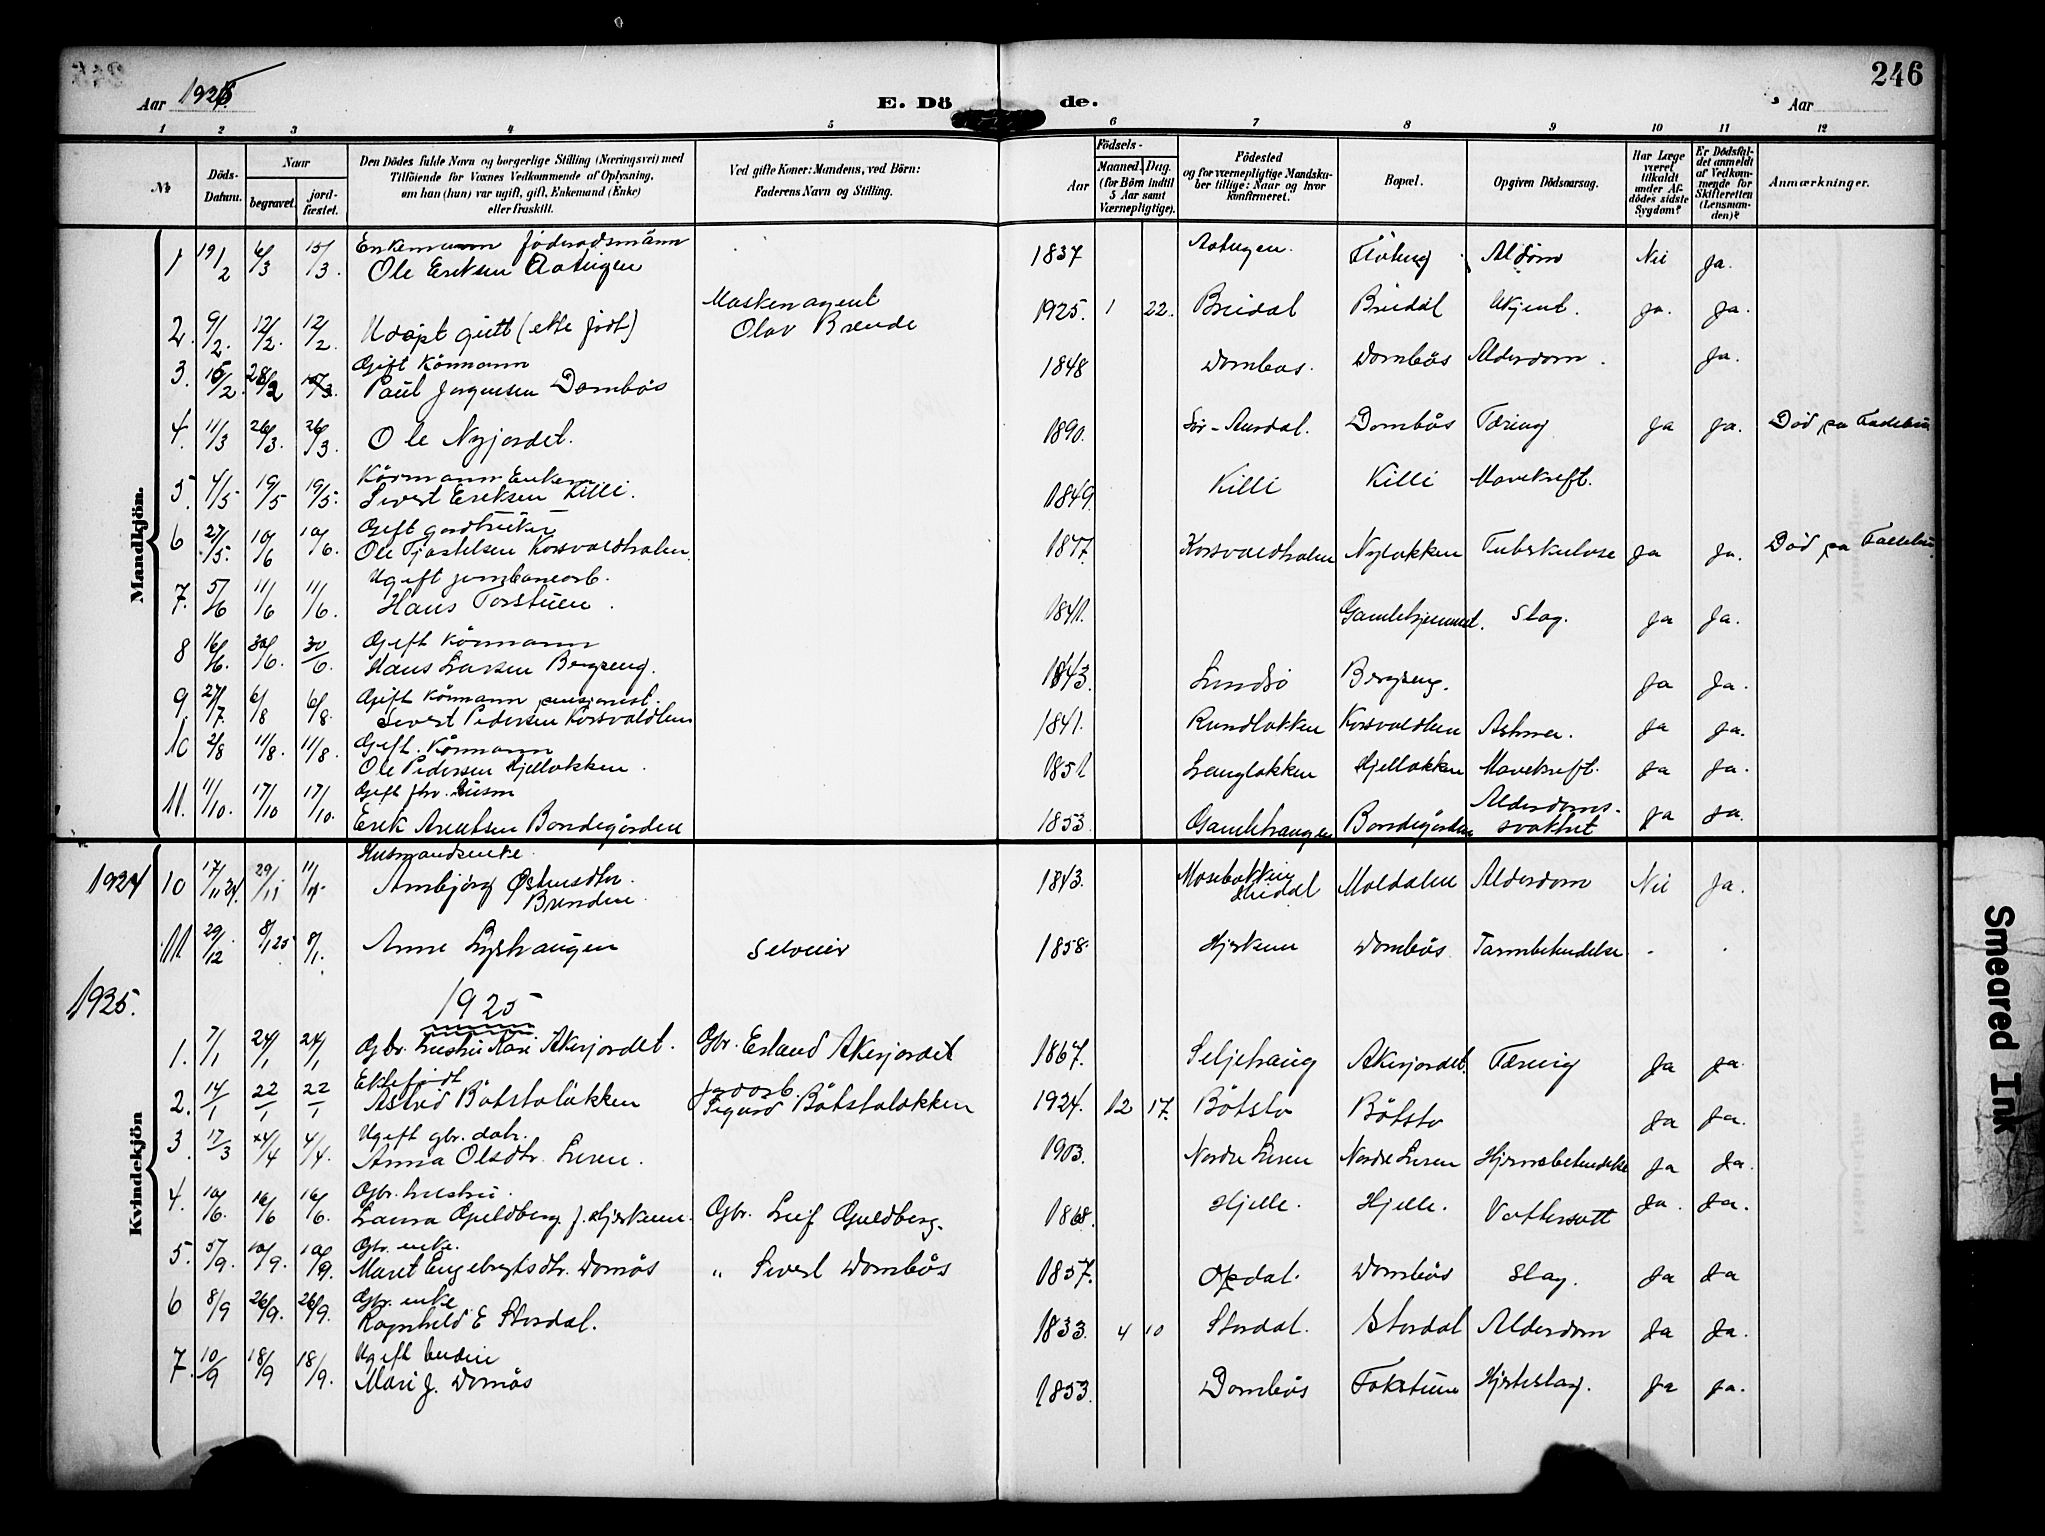 246
Aar 1925
E. Dö de.
Aar
1 2 3 4 5 6 7 8 9 10 11 12
№
Döds-Datum.
Naar
begravet.
jord-fæstet.
Den Dödes fulde Navn og borgerlige Stilling (Næringsvei) med
Tilföiende for Voxnes Vedkommende af Oplysning,
om han (hun) var ugift, gift, Enkemand (Enke)
eller fraskilt.
Ved gifte Koner: Mandens, ved Börn:
Faderens Navn og Stilling.
Födsels-
Aar
Maaned. Dag.
(for Börn indtil
5 Aar samt
Værnepligtige).
Födested
og for værnepligtige Mandska-
ber tillige: Naar og hvor
konfirmeret.
Bopæl.
Opgiven Dödsaarsag.
Har Læge
været
tilkaldt
under Af-
dödes sidste
Sygdom?
Er Dödsfal-
det anmeldt
af Vedkom-
mende for
Skifteretten
(Lensman-
den)?
Anmærkninger.
Mandkjön.
Enkemann föderadsmann
1 19/2 6/3 15/3. Ole Eriksen 1837 Aldom Nei Ja.
Maskenagent
2. 9/2. 12/2. 12/2. Udöpt gutt (ekte födt) Olav Brende 1925. 1 22. Bredal Bredal Ukjent. Ja. Ja.
Gift Kårmann
3. 15/2. 28/2 Paul Jorgensen Dombås 1848 Dombas. Dombås Alderdom. Ja.
4. 11/3 26/3. 26/3. Ole Nyjordet. 1890. Sör-Aurdal. Dombås Tæring Ja Ja. Död pa
Kårmann Enkem.
5. 4/5 19/5 19/5. Sivert Eriksen Killi. 1849. Killi Killi Mavekreft.
Gift gardbruker
6 27/5. 10/6 10/6. Ole Korsvoldhalen 1847. Korsvoldhalen Nylokken Tuberkulose Ja Ja. Död pa
Ugift jernbanearb.
7. 5/6 11/6 11/6. Hans Torstuen. 1841. Gamlehjemmet. Slag. Ja Ja.
Gift Kårmann
8 16/6. 30/6. 30/6. Hans Larsen Bergseng. 1843. Lundsö Bergseng. Ja Ja.
Gift Kårmann pensjonist.
9 27/7. 6/8 6/8. Sivert Pedersen Korsvoldhen 1841. Rundlokken Korsvoldhen Astma. Ja Ja.
Gift. Kårmann
10 2/8 11/8. 11/8. Ole Pedersen Hjellokken. 1851 Langlokken Hjellokken Mavekreft. Ja Ja.
11. 11/10. 17/10 17/10. Erik Arentsen Bondegården 1853. Gamlehaugen Bondegården Alderdoms-
svakhet Ja Ja.
Kvindekjön
Husmandsenke
1924 10 17/11 24. 29/11 Ambjörg Östensdtr.
Brenden. 1843. Moldalen Alderdom Nei Ja.
11. 29/12 8/1 25 8/1. Anne Lyshaugen 1858. Hjerkinn Dombås Tarmbetendelse - .
1935. 1925
1. 7/1 24/1 24/1 Gbr. hustru Kari Akerjordet. Gbr. Erland Akerjordet 1867. Seljehaug Akerjordet. Tæring Ja Ja.
Ektefödt
2. 14/1 22/1 22/1 Astrid Båtstoløkken Sigurd Båtstoløkken 1924. 12 17. Båtstø Båtstø Ja Ja.
Ugift gbr. datr.
3. 17/3 4/4 4/4. Anna Olsdtr. Luren. 1903. Nordre Luren Nordre Luren Hjernebetendelse Ja Ja.
Gbr. hustru.
4. 10/6. 16/6 16/6. Laura Guldberg f. Hjerkinn. Gbr. Leif Guldberg. 1868. Hjelle. Hjelle. Vattersott Ja. Ja.
Gbr. enke.
5. 5/9. 10/9. 10/9. Marit Engebrigtsdtr. Domås " Sivert Dombås 1857. Opdal. Dombås Slag. Ja Ja
Gbr. enke
6 8/9 26/9. 26/9. Ragnhild E Stordal. 1833. 4 10 Stordal. Stordal Alderdom Ja Ja.
Ugift budeie
7. 10/9 18/9 18/9. Mari J. Domås 1853. Dombås Fokstuen Hjerteslag. Ja Ja.
Smeared Ink